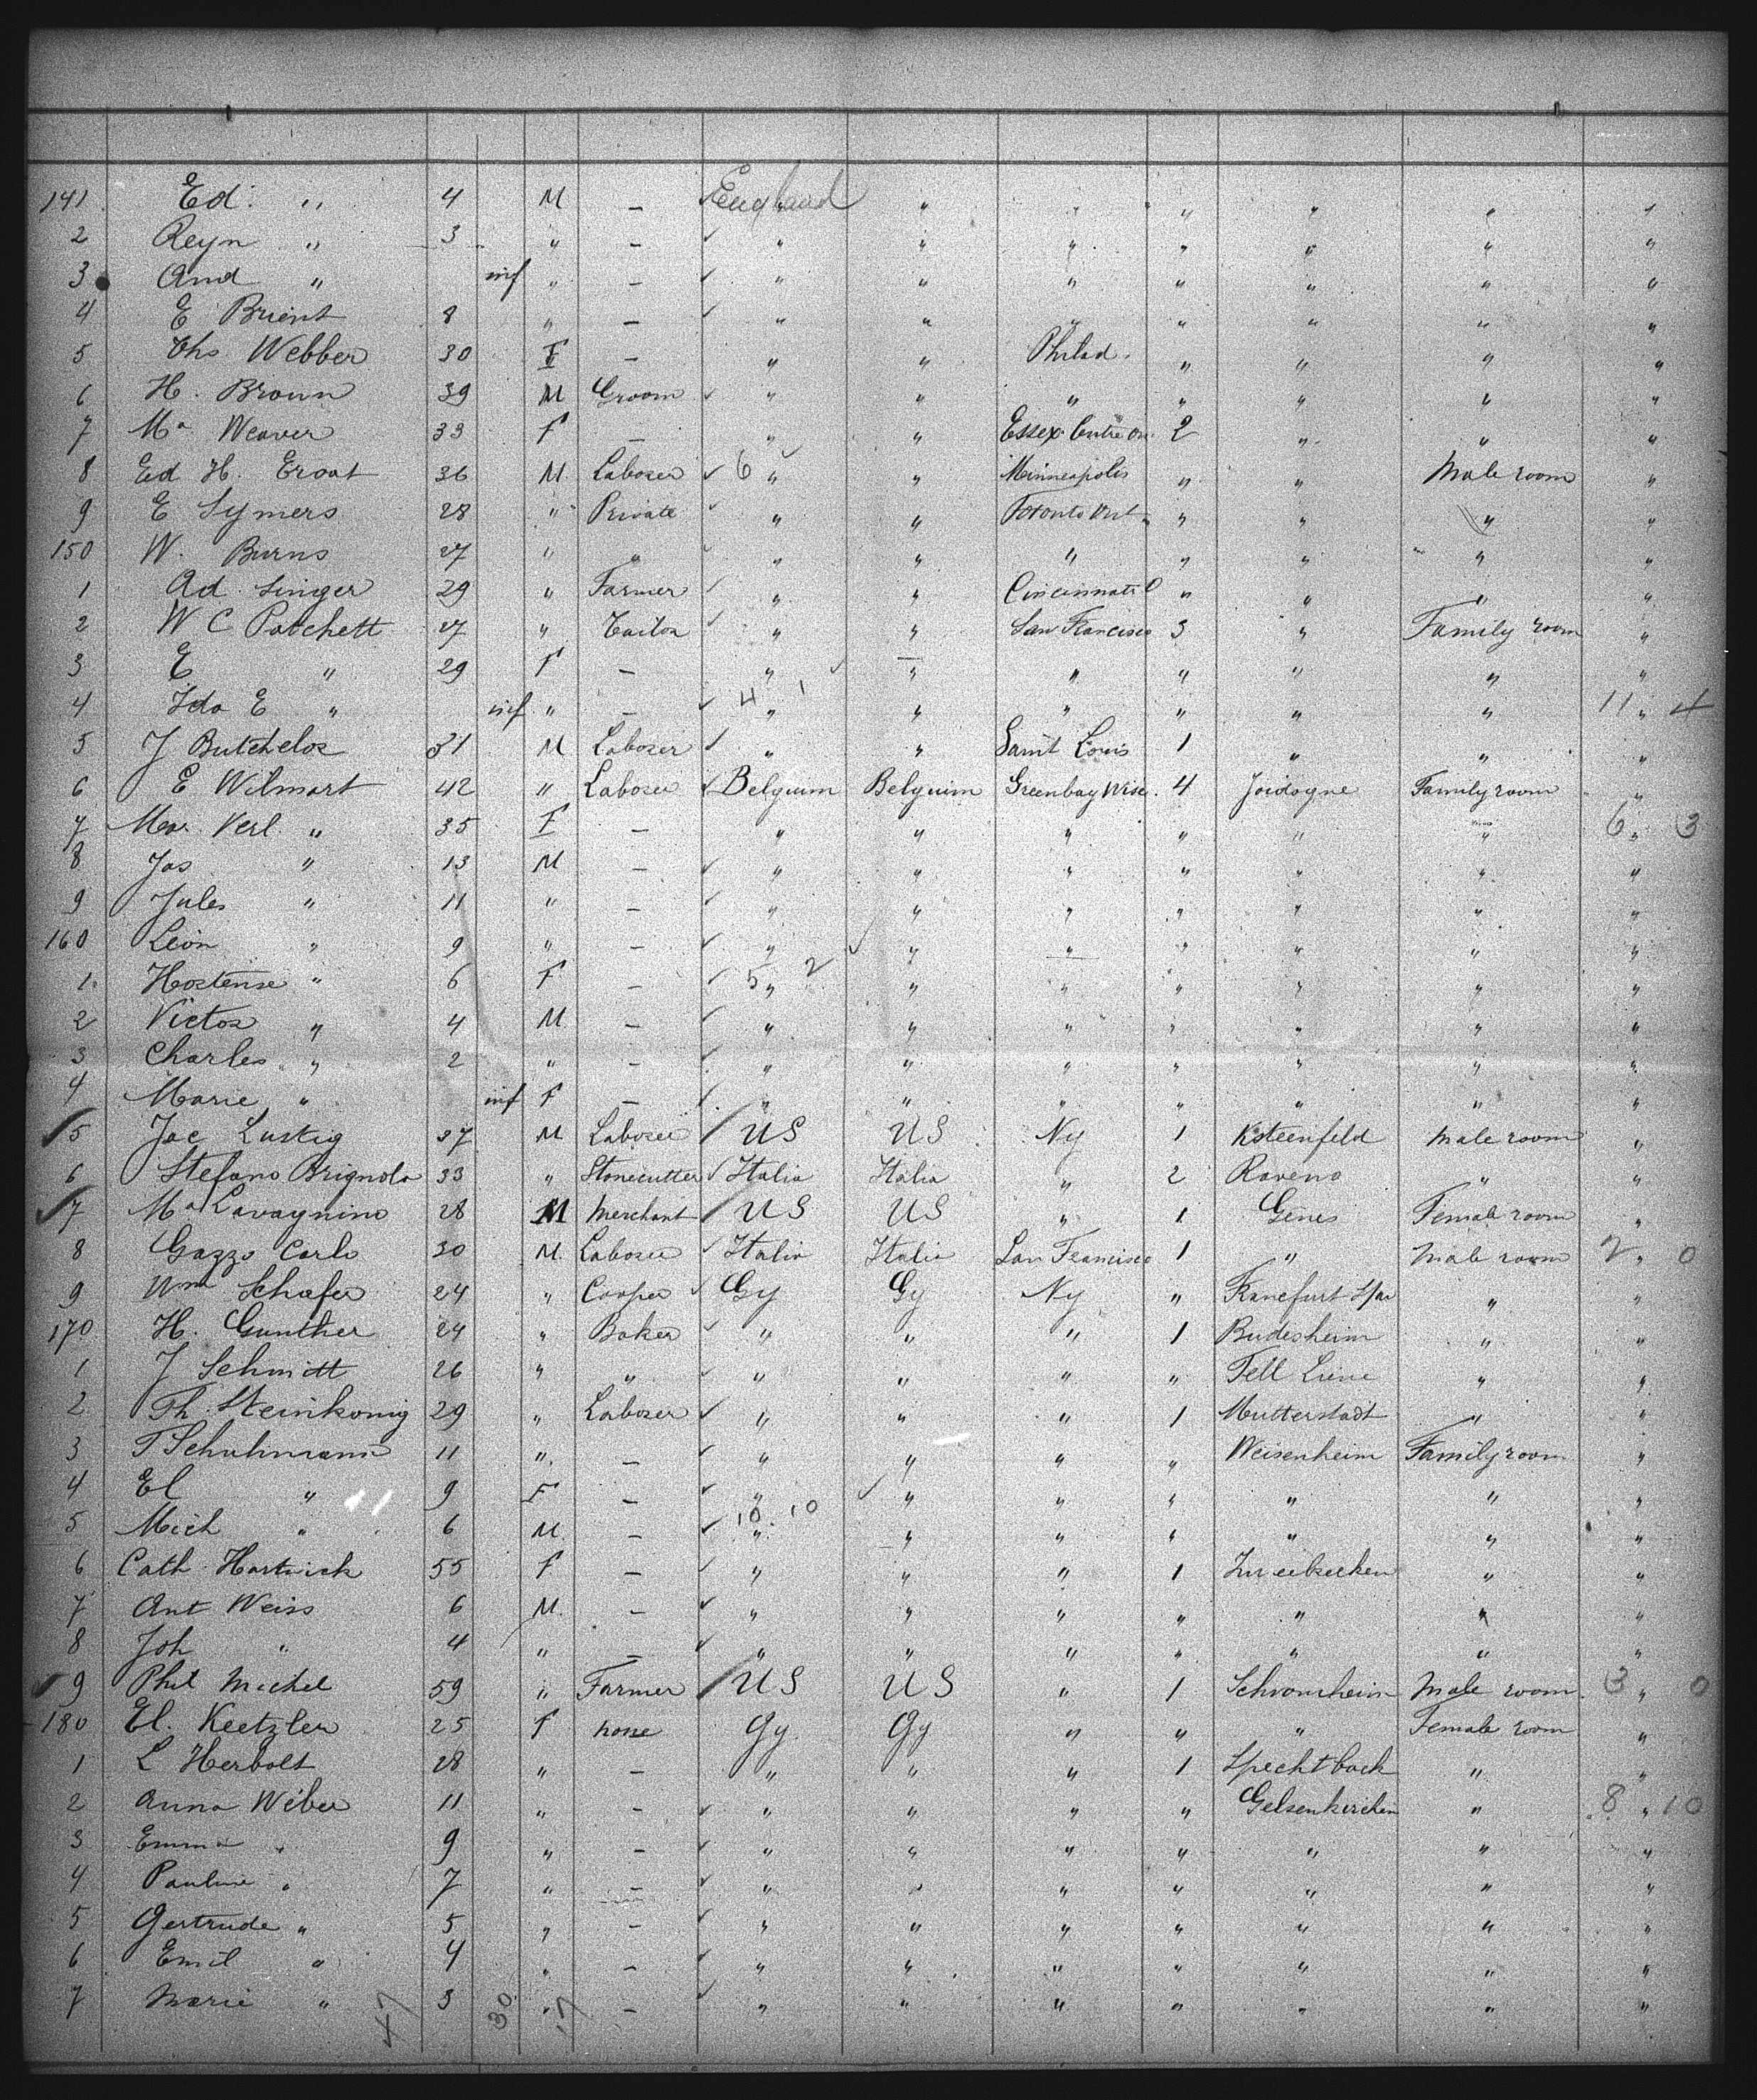 141 Ed. " 4 M — England " " " " " "
2 Reyn " 3 " — " " " " " " "
3 And " inf " — " " " " " " "
4 E Brient 8 " — " " " " " " "
5 Chs Webber 30 F — " " Philad. " " " "
6 H. Brown 39 M Groom " " " " " " "
7 Ma Weaver 33 F — " " Essex Centre On. 2 " " "
8 Ed H. Groat 36 M Laborer 6 " " Minneapolis " " Male room "
9 E Symers 28 " Private " " Toronto Ont " " " "
150 W. Burns 27 " " " " " " " " "
1 Ad Singer 29 " Farmer " " Cincinnati O " " " "
2 W C Patchett 27 " Tailor " " San Francisco 3 " Family room "
3 E " 29 F — " " " " " " "
4 Ida E " inf " — 4 1 " " " " " " 11 " 4
5 J Butchelor 31 M Laborer " " Saint Louis 1 " " "
6 E Wilmart 42 " Laborer Belgium Belgium Greenbay Wisc. 4 Joidogne Family room "
7 Mar. Verl. " 35 F — " " " " " " 6 " 3
8 Jos " 13 M — " " " " " " "
9 Jules " 11 " — " " " " " " "
160 Léon " 9 " — " " " " " " "
1 Hortense " 6 F — 5 2 " " " " " " "
2 Victor " 4 M — " " " " " " "
3 Charles " 2 " — " " " " " " "
4 Marie " inf F — " " " " " " "
5 Jac Lustig 37 M Laborer US US Ny 1 Ksteenfeld Male room "
6 Stefano Brignola 33 " Stonecutter Italia Italia " 2 Raveno " "
7 Ma Lavagnino 28 M Merchant US US " 1 Gênes Female room "
8 Gazzo Carlo 30 M. Laborer Italia Italia San Francisco 1 " Male room 2 " 0
9 Wm Schafer 24 " Cooper Gy Gy Ny " Francfurt " "
170 H. Gunther 24 " Baker " " " 1 Budesheim " "
1 J Schmitt 26 " " " " " " Fell " "
2 Th. Steinkonig 29 " Laborer " " " 1 Mutterstadt " "
3 T Schuhmann 11 " — " " " " Weisenheim Family room "
4 El " 9 F — " " " " " " "
5 Mich " 6 M. — 10 10 " " " " " " "
6 Cath Hartwick 55 F — " " " 1 " "
7 Ant Weiss 6 M. — " " " " " " "
8 Joh " 4 " — " " " " " " "
9 Phil Michel 59 " Farmer US US " 1 Schvornheim Male room 3 " 0
180 El. Keetzler 25 F none Gy Gy " " " Female room "
1 L Herbolt 28 " — " " " 1 Spechtbach " "
2 Anna Weber 11 " — " " " " Gelsenkirchen " 8 " 10
3 Emma " 9 " — " " " " " " "
4 Pauline " 7 " — " " " " " " "
5 Gertrude " 5 " — " " " " " " "
6 Emil " 4 " — " " " " " " "
7 Marie " 3 " — " " " " " " "
47 30 17